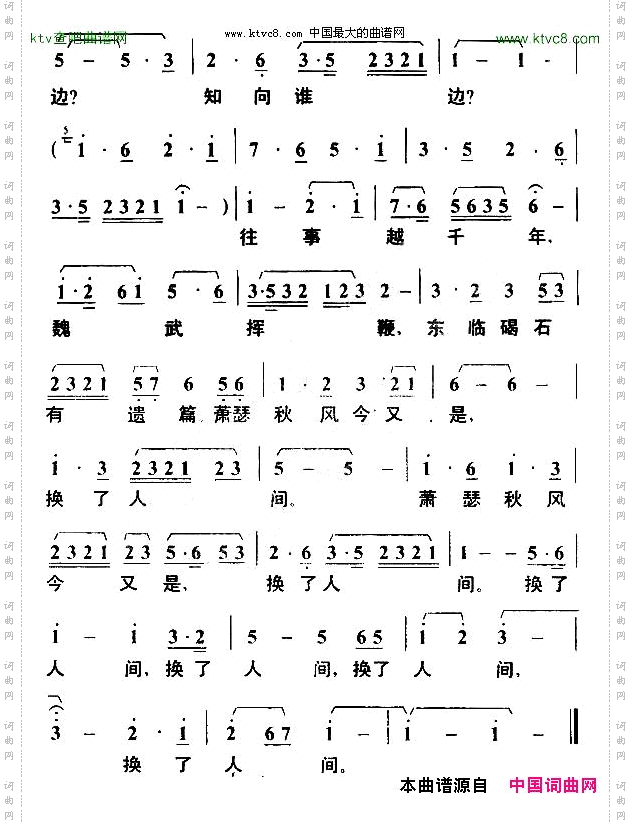 www.ktvc8.com 中国最大的曲谱网
ktv查吧曲谱网 www.ktvc8.com
5 - 5 · 3 | 2 · 6 3·5 2321 | 1 - 1 - |
边? 知向谁 边?
( 5 1 · 6 2 · 1 | 7 · 6 5 · 1 | 3 · 5 2 · 6 |
3·5 2321 1 - ) | 1 - 2 · 1 | 7·6 5635 6 - |
往 事 越 千 年,
1·2 61 5 · 6 | 3·532 123 2 - | 3 · 2 3 53 |
魏 武 挥 鞭, 东临碣石
2321 57 6 56 | 1 · 2 3 21 | 6 - 6 - |
有 遗篇萧瑟 秋风今又 是,
1 · 3 2321 23 | 5 - 5 - | 1 · 6 1 · 3 |
换了人 间。 萧瑟秋风
2321 23 5·6 53 | 2 · 6 3·5 2321 | 1 - - 5·6 |
今 又 是, 换了人 间。换了
1 - 1 3·2 | 5 - 5 65 | 1 2 3 - |
人 间,换了 人 间,换了 人 间,
3 - 2 · 1 | 2 67 1 - | 1 - 1 - ‖
换 了 人 间。
本曲谱源自 中国词曲网